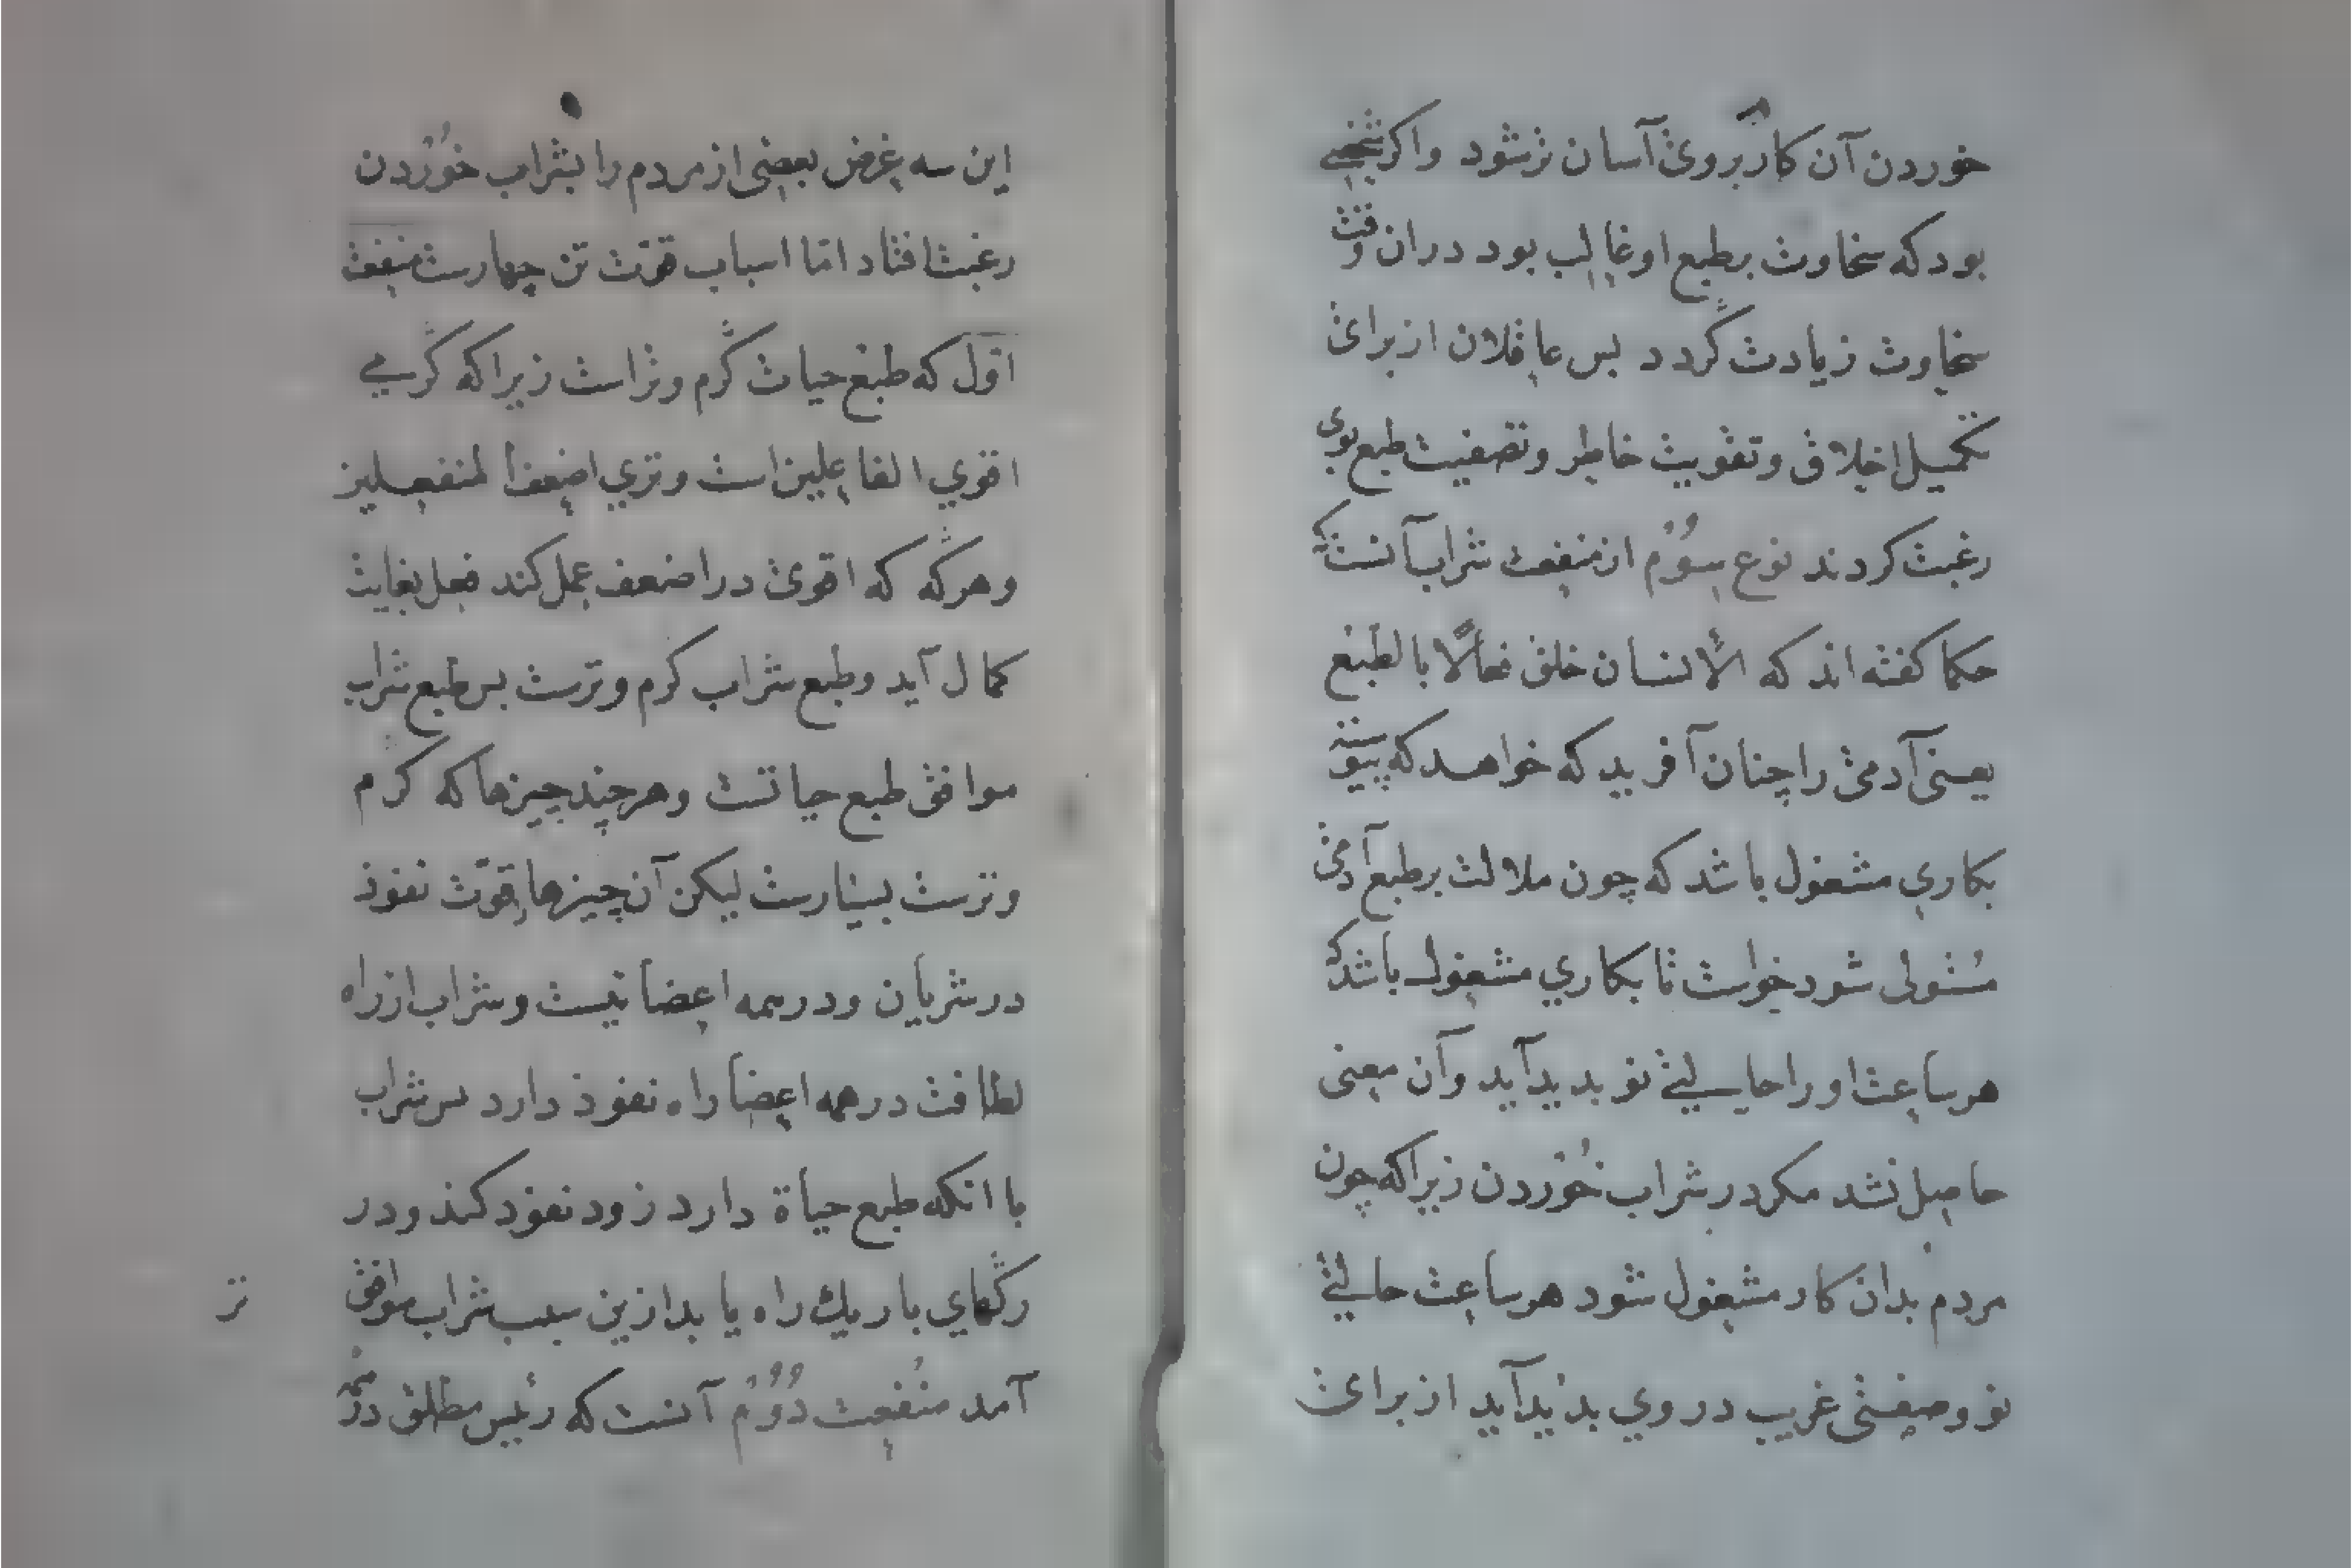 خوردن آن کار بروی آسان تر شود واکر شخصی
بود که سخاوت بر طبع او غالب بود دران وقت
سخاوت زیادت گردد بس عاقلان از برای
تکمیل اخلاق و تقویت خاطر و تصفیت طبع بوی
رغبت کردند نوع سوُم از منفعت شراب آنست که
حکما کفته اند که الأنسان خلق فعالًا بالطبع
یعنی آدمی را چنان آفرید که خواهد که پیوسته
بکاري مشغول باشد که چون ملالت بر طبع آدمی
مستولی شود خواست تا بکاري مشغول باشد که
هر ساعت او را حالتی نو بدید آید و آن معنی
حاصل نشد مکر در شراب خوُردن زیرا که چون
مردم بدان کار مشغول شود هر ساعت حالتی
نو و صفتی غریب در وي بدید آید از برای
این سه غرض بعضی از مردم را بشراب خوُردن
رغبت افتاد امّا اسباب قوّت تن چهارست منفعت
اوّل که طبع حیات گرم و تر است زیرا که گرمي
اقوي الفاعلین است و تري اضعف المنفعلین
و هرگه که اقوی در اضعف عمل کند فعل بغایت
کمال آید و طبع شراب کرم و ترست بس طبع شراب
موافق طبع حیاتست و هر چند چیزها که کرم
و ترست بسیارست لیکن آن چیزها قوّت نفوذ
در شریان و در همه اعضا نیست و شراب از راه
لطافت در همه اعضا راه نفوذ دارد بس شراب
با انکه طبع حیاة دارد زود نفوذ کند و در
رگهاي باریك راه یابد ازین سبب شراب موافق
تر
آمد منفعت دوُم آنست که رئیس مطلق در